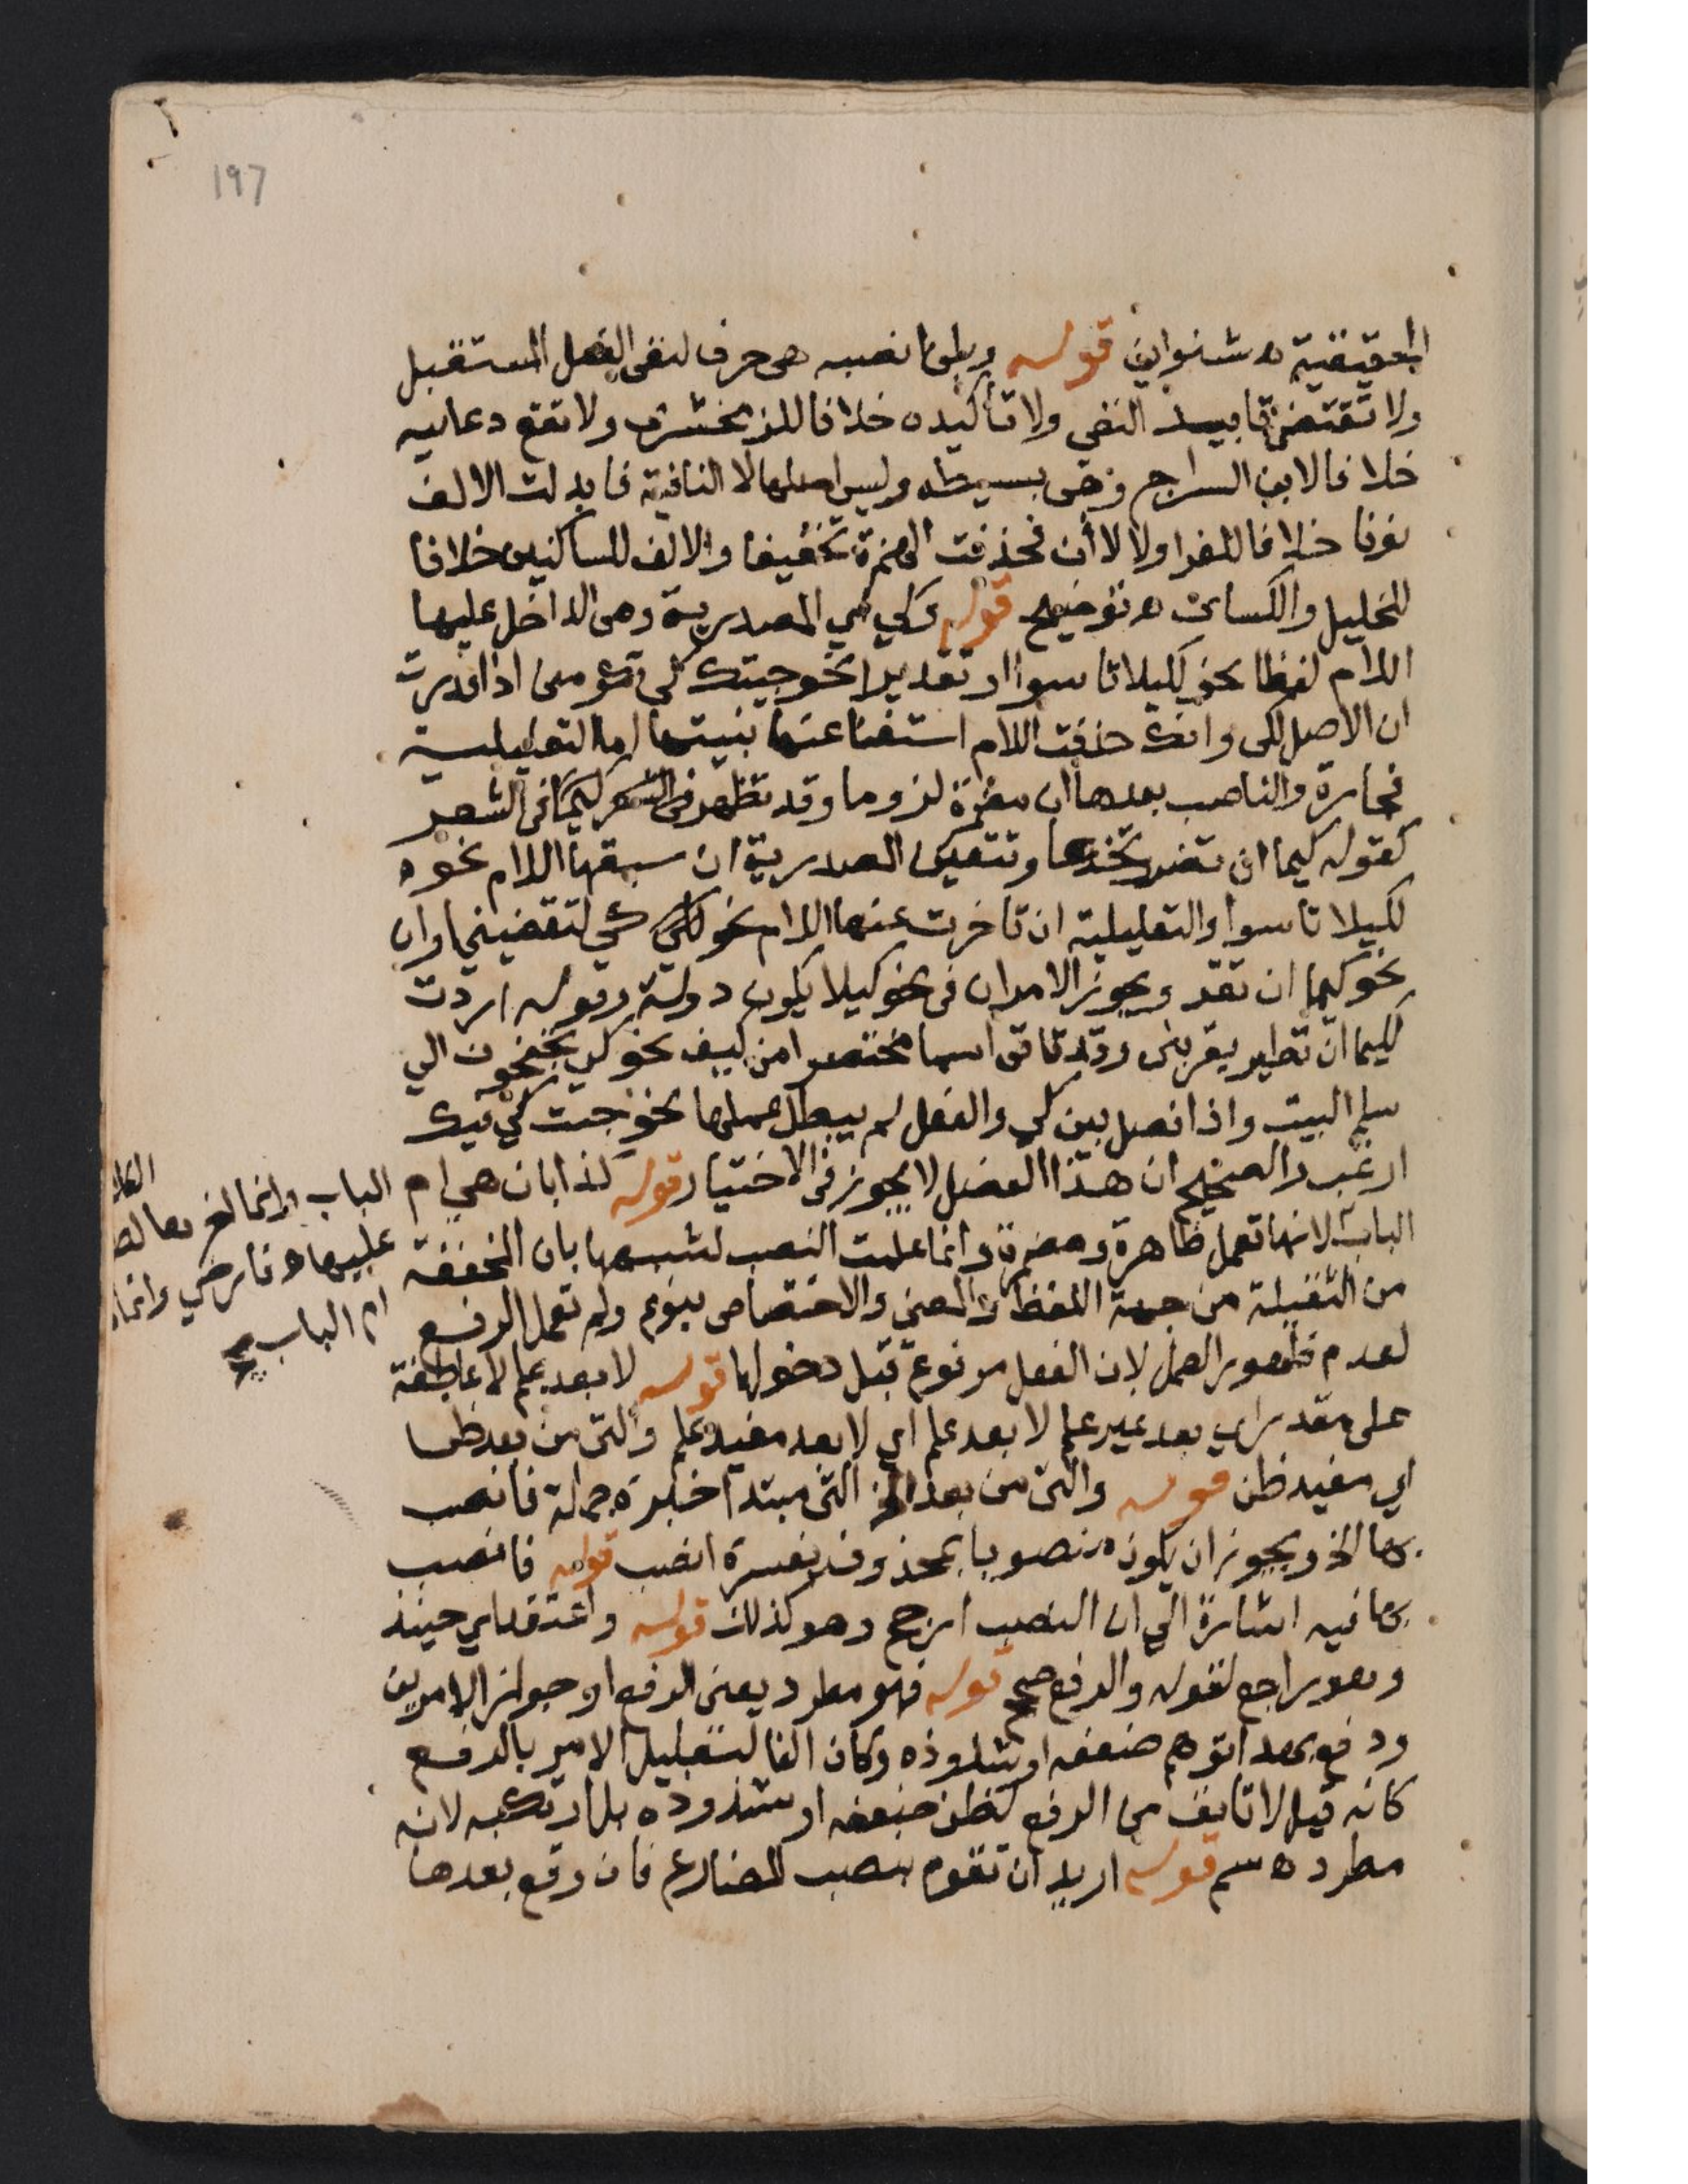 ١٩٦
الحقيقية ه شنواني قوله وبلن انصبه هي حرف لنفي الفعل المستقبل
ولا تقتضي تابيد النفي ولا تأكيده خلافا للزمخشري ولا تقع دعاييه
خلافا لابن السراج وهي بسيطه وليس اصلها لا النافية فابدلت الالف
نونا خلافا للفرا ولا لا أن فحذفت الهمزة تخفيفا والالف للساكنين خلافا
للخليل والكسائ ه توضيح قوله وكي هي المصدرية وهى الداخل عليها
اللام لفظا نحو لكيلا تاسوا او تقديرا نحو جيتك كي تكرمنى اذا قدرت
ان الاصل لكى وانك حذفت اللام استغناعنها بنيتها اما التعليلية
فجارة والناصب بعدها ان مضمرة لزوما وقد تظهر فى الشعر
كقوله كيما ان تغر وتخدعا وتتعين المصدرية ان سبقها اللام نحوه
لكيلا تاسوا والتعليلية ان تاخرت عنها اللام نحو كي لتقضيني او ان
نحو كيما ان تغر ويجوز الامران فى نحو كيلا يكون دولة وقوله اردت
لكيما ان تطير بقربتى وقد تاتى اسما مختصرا من كيف نحو كي تجنحون الي
سلم البيت واذا فصل بين كي والفعل لم يبطل عملها نحو جيت كي فيك
ارغب والصحيح ان هذا الفصل لا يجوز فى الاختيار قوله كذا بان هي ام
الباب لانها تعمل ظاهرة ومضمرة وانما عملت النصب لشبهها بان المخففة
من الثقيلة من جهة اللفظ والمعنى والاختصاص بنوع ولم تعمل الرفع
لعدم ظهور العمل لان الفعل مرفوع قبل دخولها قوله لا بعد علم لا عاطفة
على مقدر اي بعد غير علم لا بعد علم اي لا بعد مفيد علم والتى من بعد ظن
اي مفيد ظن قوله والتى من بعد الخ التى مبتدا خبره جملة فانصب
بها الخ ويجوز ان يكون منصوبا بمحذوف يفسره انصب قوله فانصب
بها فيه اشارة الي ان النصب ارجح وهو كذلك قوله واعتقد اي حينئذ
وهو راجع لقوله والرفع صحح قوله فهو مطرد يعنى الرفع او جواز الامرين
ودفع بهذا توهم ضعفه او شذوذه وكان الفا لتعليل الامر بالرفع
كانه قيل لا تانف من الرفع لظن ضعفه او شذوذه بل ارتكبه لانه
مطرد ه سم قوله اريد ان تقوم بنصب المضارع فان وقع بعدها
الباب وانما لغر
عليها ه فارضي وانما
ام الباب